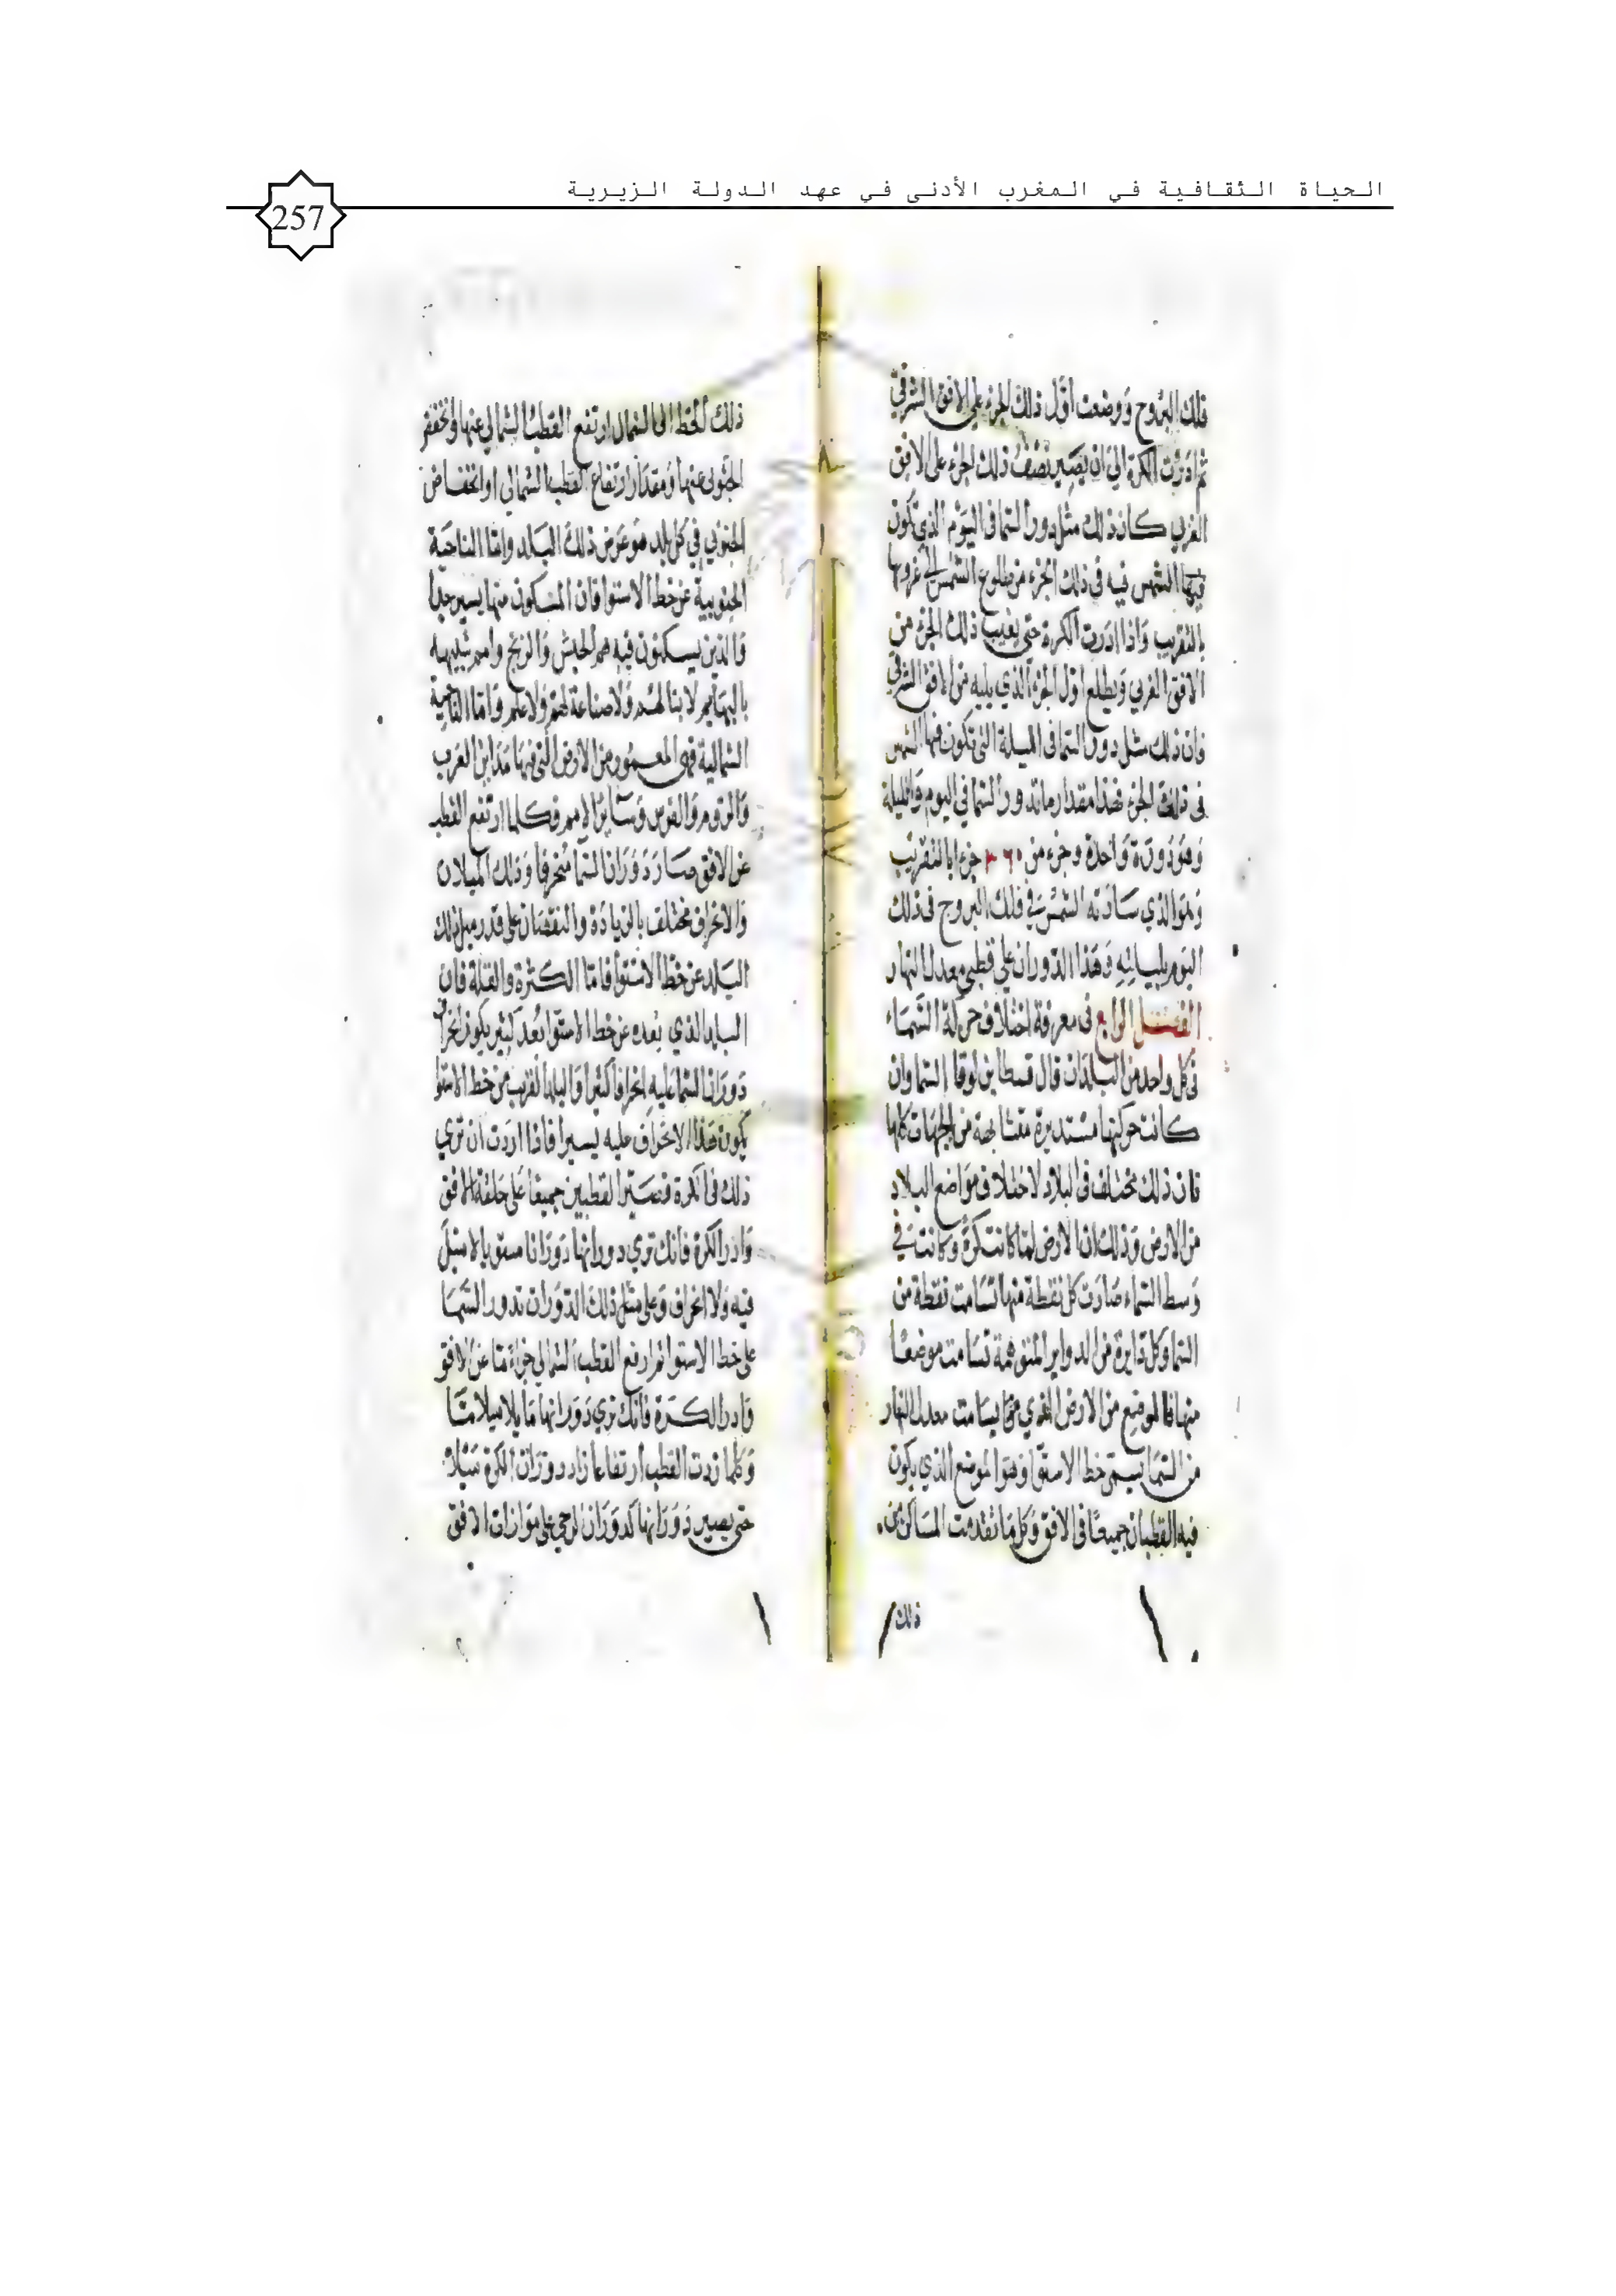 الحياة الثقافية في المغرب الأدنى في عهد الدولة الزيرية
257
فلك البروج ووضعت اول ذلك الجزء علي الافق الشرقي
ثم ادرت الكرة الي ان يصير نصف ذلك الجزء على الافق
الغربي كان ذلك مثل دور السما فى اليوم الذي تكون
فيها الشمس فيه في ذلك الجزء من طلوع الشمس الى غروبها
بالتقريب واذا ادرت الكرة حتى يغيب ذلك الجزء من
الافق الغربي ويطلع اول الجزء الذي يليه من الافق الشرقي
فان ذلك مثل دور السما فى الليلة التى تكون فيها الشمس
فى ذلك الجزء فهذا مقدار ما تدور السما في اليوم والليلة
وهو دورة واحدة وجزء من ٣٦٠ جزءا بالتقريب
وهو الذي سارته الشمس في فلك البروج فى ذلك
اليوم بليلته وهذا الدوران على قطبي معدل النهار
الفصل الرابع فى معرفة اختلاف حركة السماء
فى كل واحد من البلدان قال قسطا بن لوقا السما وان
كانت حركتها مستديرة متشابهة من الجهات كلها
فان ذلك مختلف فى البلاد لاختلاف مواضع البلاد
من الارض وذلك ان الارض لما كانت كرة وكانت في
وسط السماء صارت كل نقطة منها تسامت نقطة من
السما وكل دايرة من الدواير المتوهمة تسامت موضعا
منها فالموضع من الارض الذي يسامت معدل النهار
من السما يسمى خط الاستوا وهو الموضع الذي يكون
فيه القطبان جميعا فى الافق وكل ما تقدمت المساكن عن
ذلك
ذلك الخط الى الشمال ارتفع القطب الشمالي عنها وانخفض
الجنوبى عنها ومقدار ارتفاع القطب الشمالي او انخفاض
الجنوبي في كل بلد هو عرض ذلك البلد واما الناحية
الجنوبية عن خط الاستوا فان المسكون منها يسير جدا
والذين يسكنون فيه هم الحبش والزنج وامم شبيهة
بالبهايم لا بنا لهم ولا صناعة لهم ولا علم واما الناحية
الشمالية فهى المعمور من الارض التى فيها مداين العرب
والروم والفرس وساير الامم فكلما ارتفع القطب
عن الافق صار دوران السما منحرفا وذلك الميلان
والانحراف مختلف بالزيادة والنقصان على قدر ميل ذلك
البلد عن خط الاستوا فاما الكثرة والقلة فان
البلد الذي بعده عن خط الاستوا بعد كثير يكون انحراف
دوران السما عليه انحرافا كثيرا والبلد القريب من خط الاستوا
يكون هذا الانحراف عليه يسيرا فاذا اردت ان تري
ذلك فى الكرة فصير القطبين جميعا على حلقة الافق
وادر الكرة فانك تري دورانها دورانا مستويا لا ميل
فيه ولا انحراف وعلى مثل ذلك الدوران تدور السما
على خط الاستوا ثم ارفع القطب الشمالي جزءا ما عن الافق
وادر الكرة فانك تري دورانها مايلا ميلا ما
وكلما زدت القطب ارتفاعا زاد دوران الكرة ميلا
حتى يصير دورانها كدوران الرحي على موازاة الافق